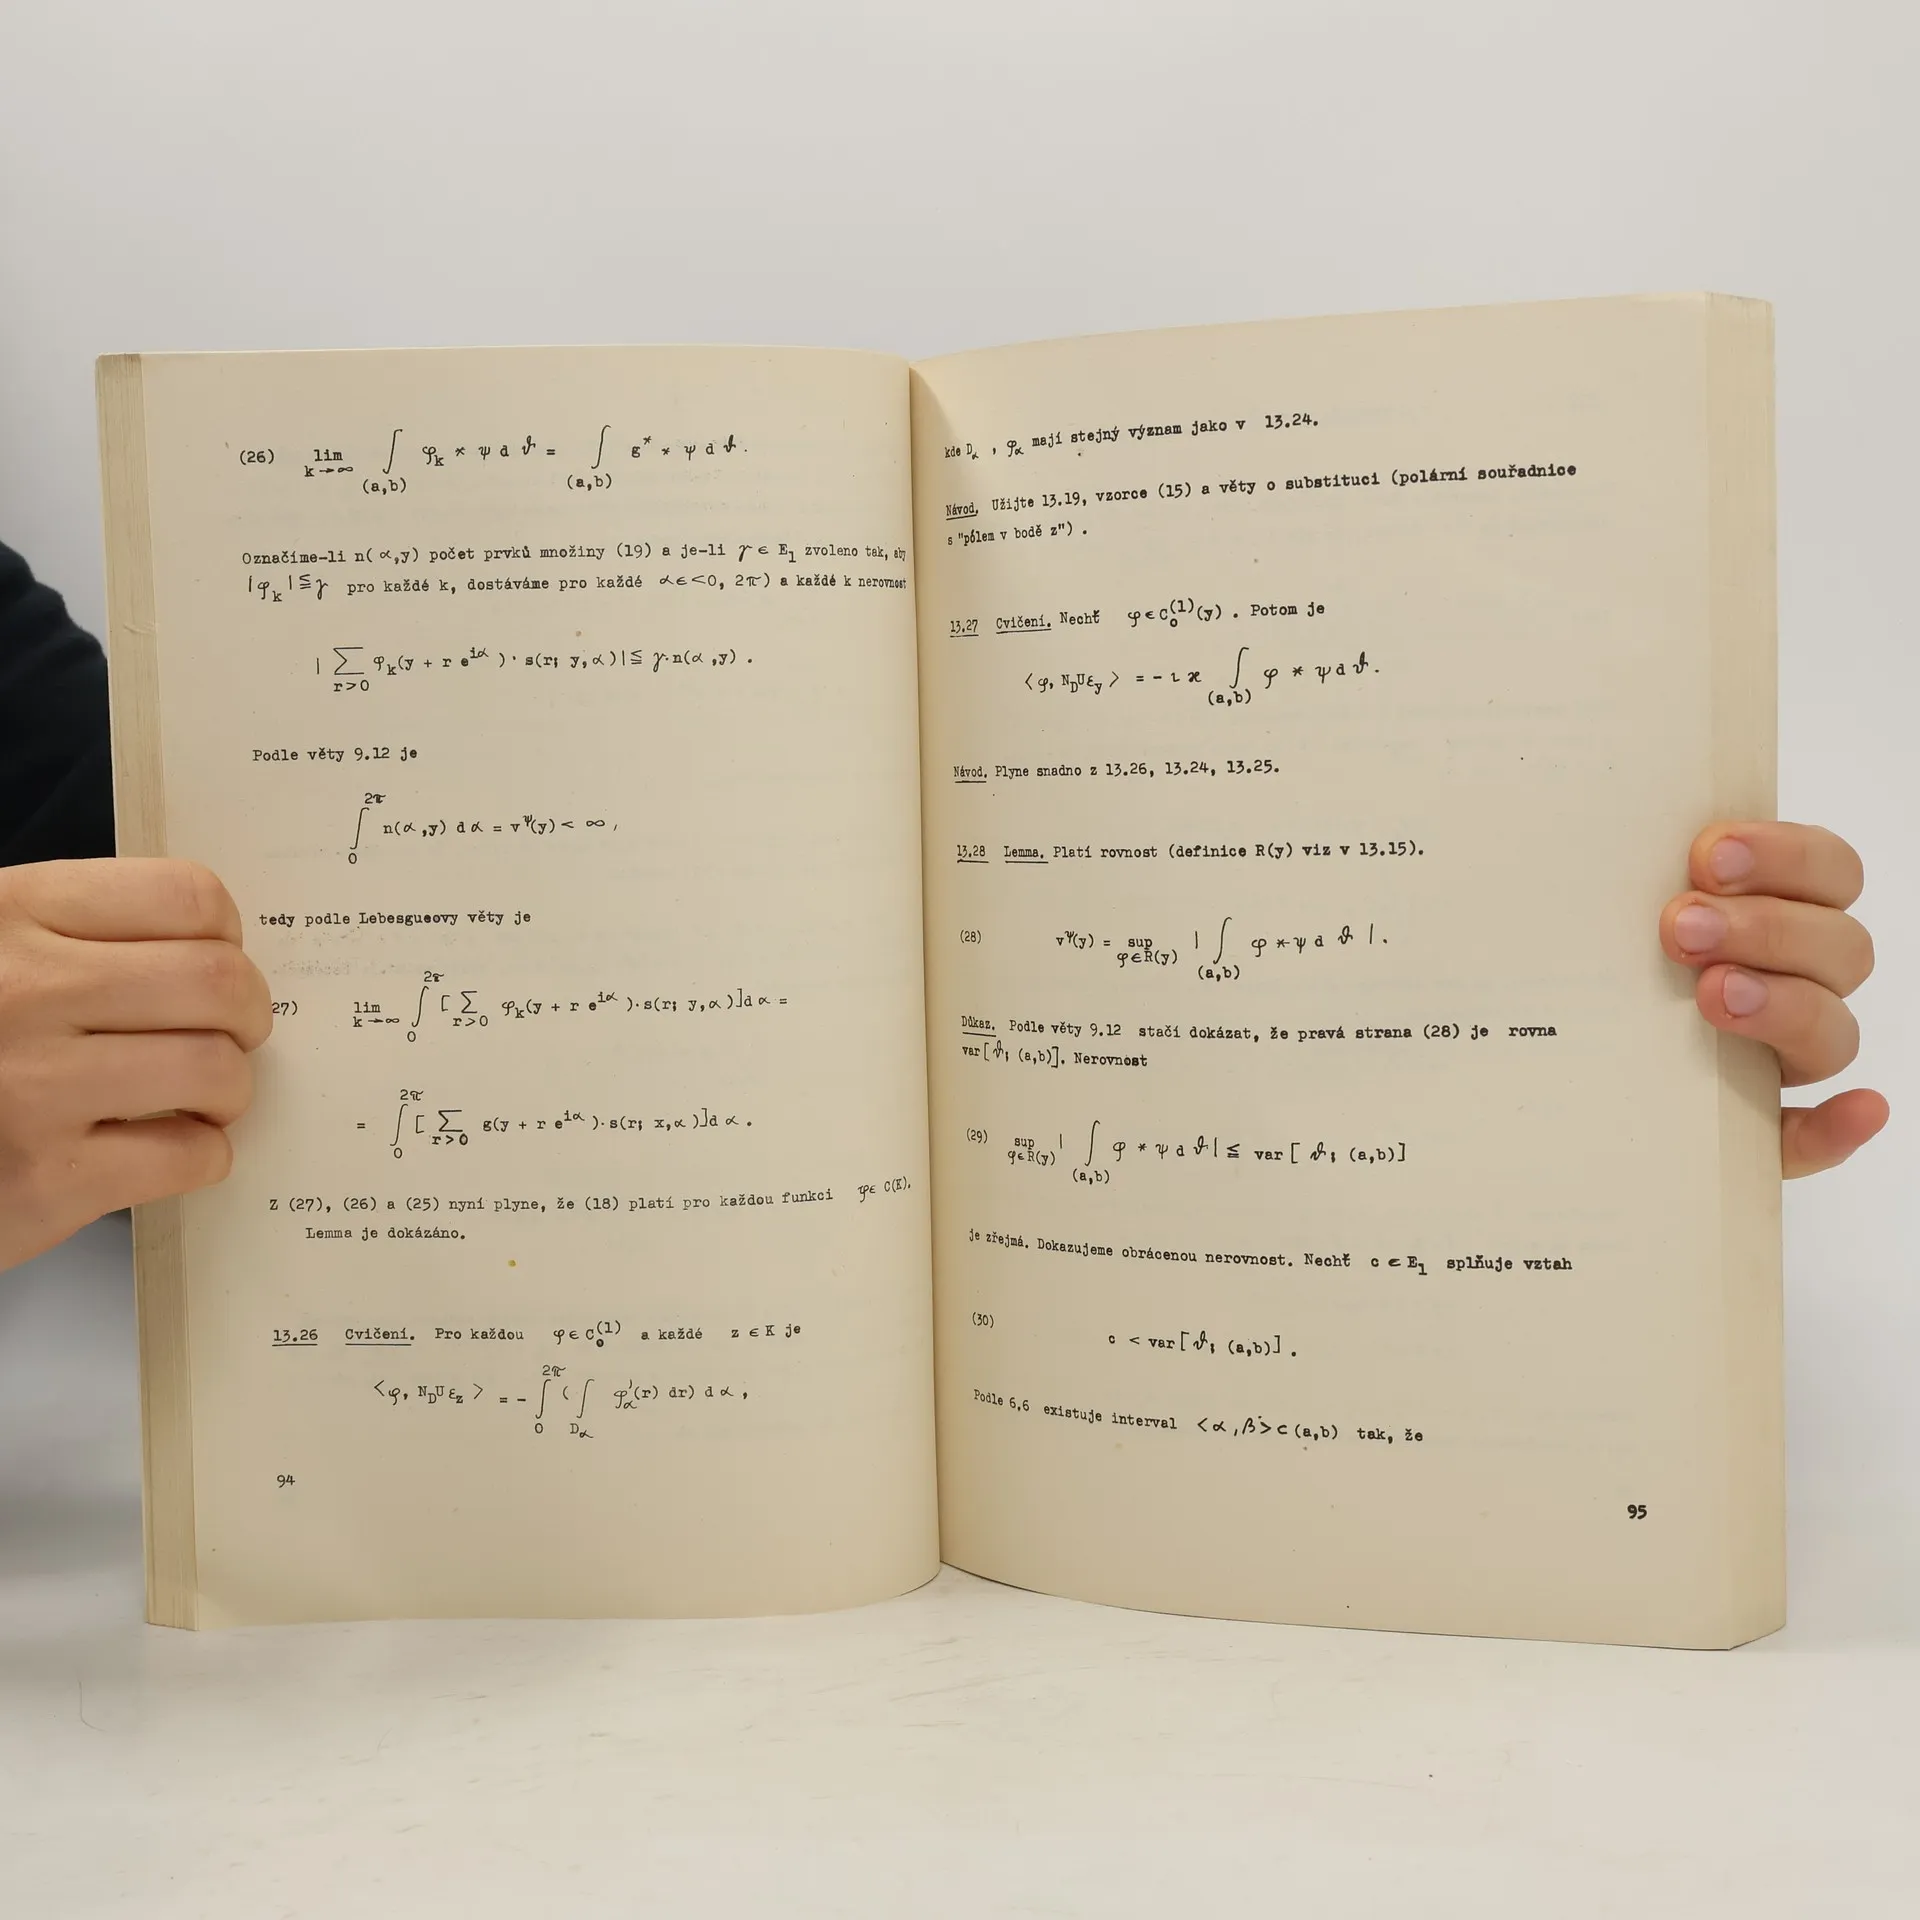 (26) lim k→∞ ∫ (a,b) φ_k * ψ d ϑ = ∫ (a,b) g* * ψ d ϑ.
Označíme-li n(α,y) počet prvků množiny (19) a je-li γ ∈ E_1 zvoleno tak, aby
|φ_k| ≦ γ pro každé k, dostáváme pro každé α∈<0, 2π) a každé k nerovnost
| ∑ r>0 φ_k(y + r e^{iα}) · s(r; y,α)| ≦ γ·n(α,y) .
Podle věty 9.12 je
∫_0^{2π} n(α,y) d α = v^ψ(y) < ∞ ,
tedy podle Lebesgueovy věty je
27) lim k→∞ ∫_0^{2π} [ ∑ r>0 φ_k(y + r e^{iα}) · s(r; y,α)]d α =
= ∫_0^{2π} [ ∑ r>0 g(y + r e^{iα}) · s(r; x,α)]d α .
Z (27), (26) a (25) nyní plyne, že (18) platí pro každou funkci φ∈ C(K).
Lemma je dokázáno.
13.26 Cvičení. Pro každou φ ∈ C_0^{(1)} a každé z ∈ K je
<φ, N_D U ε_z > = - ∫_0^{2π} ( ∫ D_α φ'_α(r) dr) d α ,
94
kde D_α , φ_α mají stejný význam jako v 13.24.
Návod. Užijte 13.19, vzorce (15) a věty o substituci (polární souřadnice
s "pólem v bodě z") .
13.27 Cvičení. Nechť φ ∈ C_0^{(1)}(y) . Potom je
<φ, N_D U ε_y > = - ι ϰ ∫ (a,b) φ * ψ d ϑ.
Návod. Plyne snadno z 13.26, 13.24, 13.25.
13.28 Lemma. Platí rovnost (definice R(y) viz v 13.15).
(28) v^ψ(y) = sup φ∈R(y) | ∫ (a,b) φ * ψ d ϑ | .
Důkaz. Podle věty 9.12 stačí dokázat, že pravá strana (28) je rovna
var[ϑ; (a,b)]. Nerovnost
(29) sup φ∈R(y) | ∫ (a,b) φ * ψ d ϑ | ≦ var [ ϑ; (a,b)]
je zřejmá. Dokazujeme obrácenou nerovnost. Nechť c ∈ E_1 splňuje vztah
(30) c < var [ϑ; (a,b)] .
Podle 6.6 existuje interval <α,β> ⊂ (a,b) tak, že
95